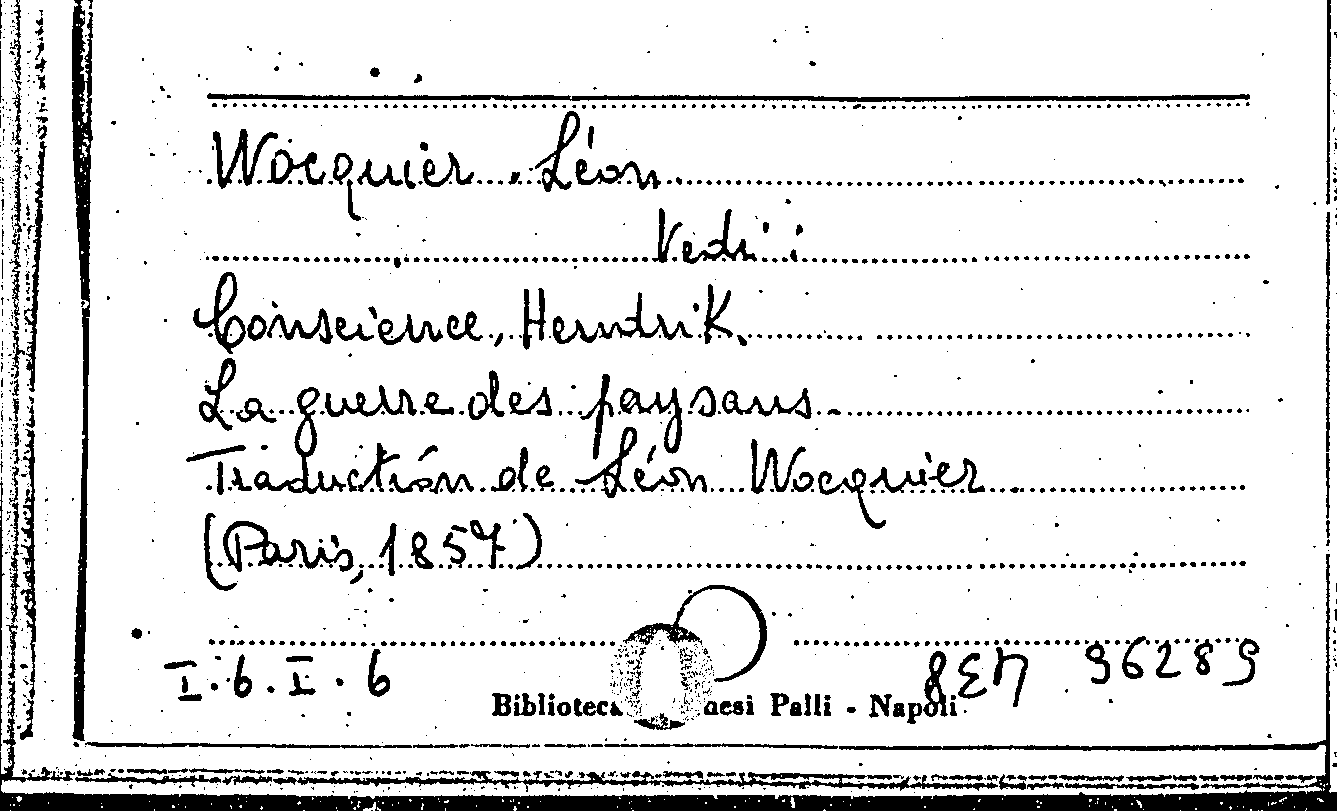 Wocquier, Léon
Vedi:
Conscience, Hendrik.
La guerre des paysans.
Traduction de Léon Wocquier
(Paris, 1857)
I.6.I.6
96289
Biblioteca nesi Palli - Napoli